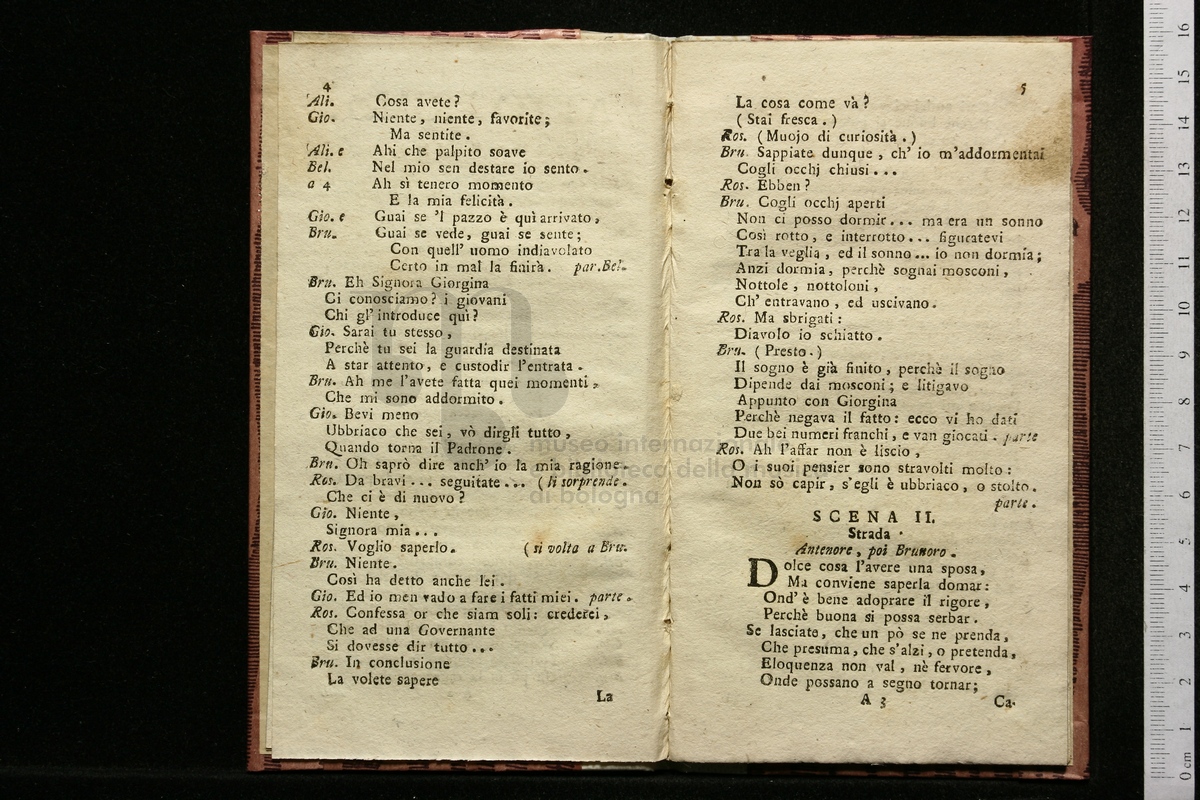 4
Ali. Cosa avete?
Gio. Niente, niente, favorite;
Ma sentite.
Ali. e Ahi che palpito soave
Bel. Nel mio sen destare io sento.
a 4 Ah sì tenero momento
E la mia felicità.
Gio. e Guai se 'l pazzo è quì arrivato,
Bru. Guai se vede, guai se sente;
Con quell' uomo indiavolato
Certo in mal la finirà. par. Bel.
Bru. Eh Signora Giorgina
Ci conosciamo? i giovani
Chi gl' introduce quì?
Gio. Sarai tu stesso,
Perchè tu sei la guardia destinata
A star attento, e custodir l'entrata.
Bru. Ah me l'avete fatta quei momenti,
Che mi sono addormito.
Gio. Bevi meno
Ubbriaco che sei, vò dirgli tutto,
Quando torna il Padrone.
Bru. Oh saprò dire anch' io la mia ragione.
Ros. Da bravi... seguitate... (li sorprende.
Che ci è di nuovo?
Gio. Niente,
Signora mia...
Ros. Voglio saperlo. (si volta a Bru.
Bru. Niente.
Così ha detto anche lei.
Gio. Ed io men vado a fare i fatti miei. parte.
Ros. Confessa or che siam soli: crederei,
Che ad una Governante
Si dovesse dir tutto...
Bru. In conclusione
La volete sapere
La
5
La cosa come và?
(Stai fresca.)
Ros. (Muojo di curiosità.)
Bru. Sappiate dunque, ch' io m'addormentai
Cogli occhj chiusi...
Ros. Ebben?
Bru. Cogli occhj aperti
Non ci posso dormir... ma era un sonno
Così rotto, e interrotto... figuratevi
Tra la veglia, ed il sonno... io non dormia;
Anzi dormia, perchè sognai mosconi,
Nottole, nottoloni,
Ch' entravano, ed uscivano.
Ros. Ma sbrigati:
Diavolo io schiatto.
Bru. (Presto.)
Il sogno è già finito, perchè il sogno
Dipende dai mosconi; e litigavo
Appunto con Giorgina
Perchè negava il fatto: ecco vi ho dati
Due bei numeri franchi, e van giocati. parte
Ros. Ah l'affar non è liscio,
O i suoi pensier sono stravolti molto:
Non sò capir, s'egli è ubbriaco, o stolto.
parte.
SCENA II.
Strada.
Antenore, poi Brunoro.
Dolce cosa l'avere una sposa,
Ma conviene saperla domar:
Ond' è bene adoprare il rigore,
Perchè buona si possa serbar.
Se lasciate, che un pò se ne prenda,
Che presuma, che s'alzi, o pretenda,
Eloquenza non val, nè fervore,
Onde possano a segno tornar;
A 3 Ca-
museo internazionale
biblioteca della musica
di bologna
0 cm 1 2 3 4 5 6 7 8 9 10 11 12 13 14 15 16